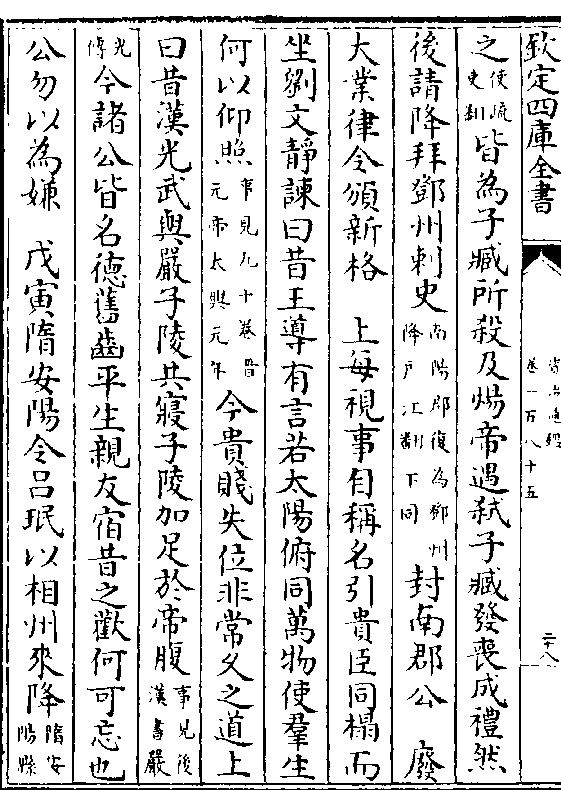 欽定四庫全書 資治通鑑 卷一百八十五 二十八
之使疏吏翻皆為子臧所殺及煬帝遇弒子臧發喪成禮然
後請降拜鄧州刺史南陽郡復為鄧州降戶江翻下同封南郡公 廢
大業律令頒新格 上每視事自稱名引貴臣同榻而
坐劉文靜諫曰昔王導有言若太陽俯同萬物使羣生
何以仰照事見九十卷晉元帝太興元年今貴賤失位非常久之道上
曰昔漢光武與嚴子陵共寢子陵加足於帝腹事見後漢書嚴
光傳今諸公皆名德舊齒平生親友宿昔之歡何可忘也
公勿以為嫌 戊寅隋安陽令呂珉以相州來降隋安陽縣